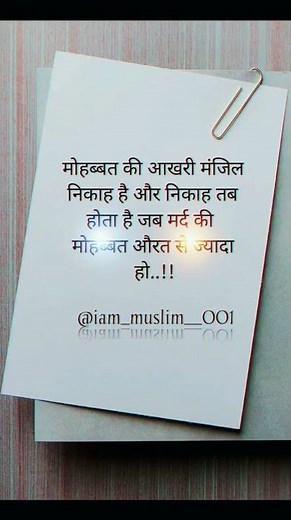 मोहब्बत की आखरी मंजिल
निकाह है और निकाह तब
होता है जब मर्द की
मोहब्बत औरत से ज्यादा
हो..!!
@iam_muslim__001